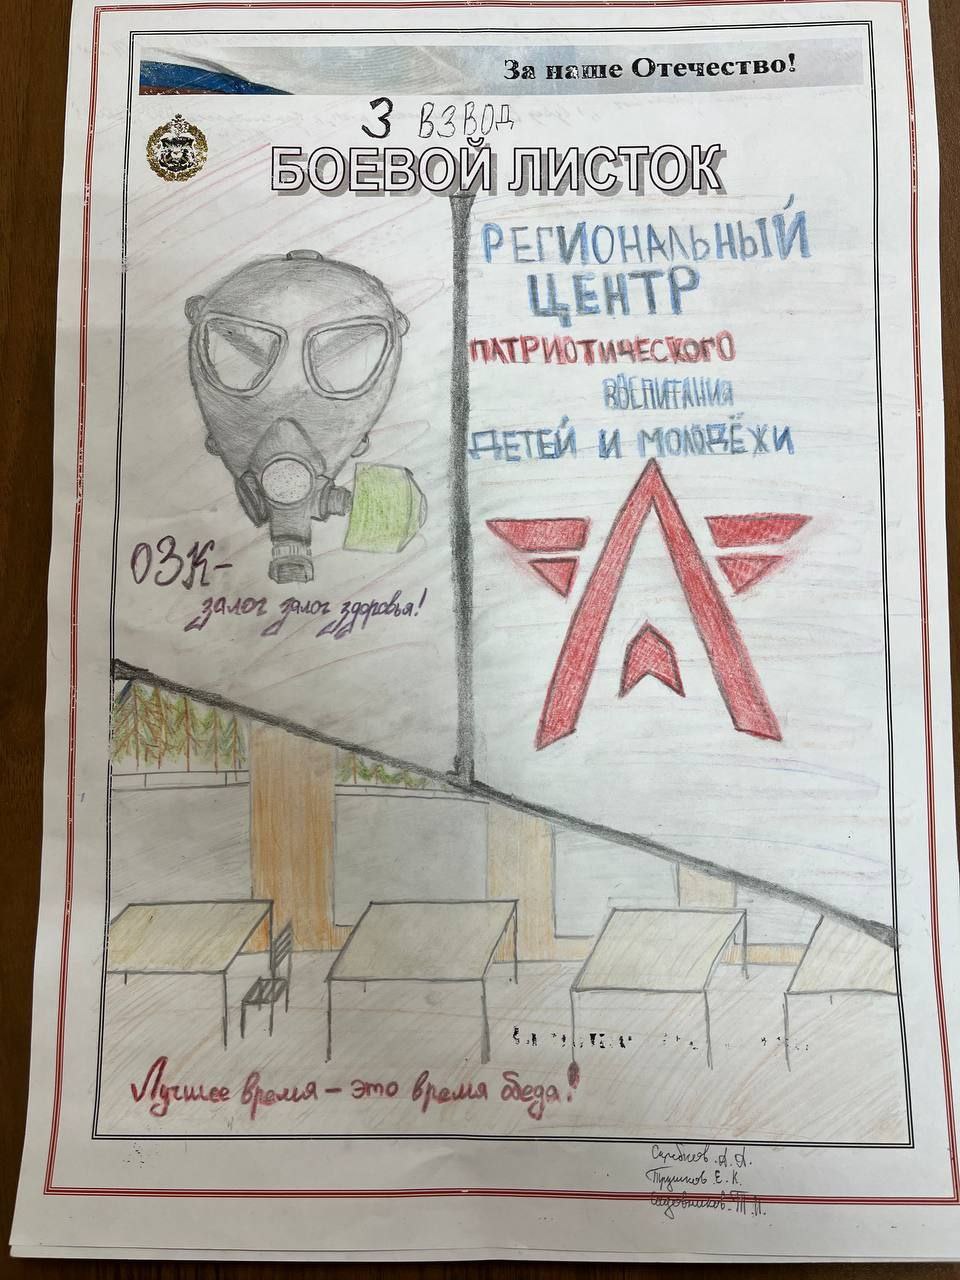 За наше Отечество!
3 ВЗВОД
БОЕВОЙ ЛИСТОК
РЕГИОНАЛЬНЫЙ
ЦЕНТР
ПАТРИОТИЧЕСКОГО
ВОСПИТАНИЯ
ДЕТЕЙ И МОЛОДЁЖИ
ОЗК-
залог залог здоровья!
Лучшее время - это время обеда!
А.А.
Трушков Е.К.
Садовников Т.И.